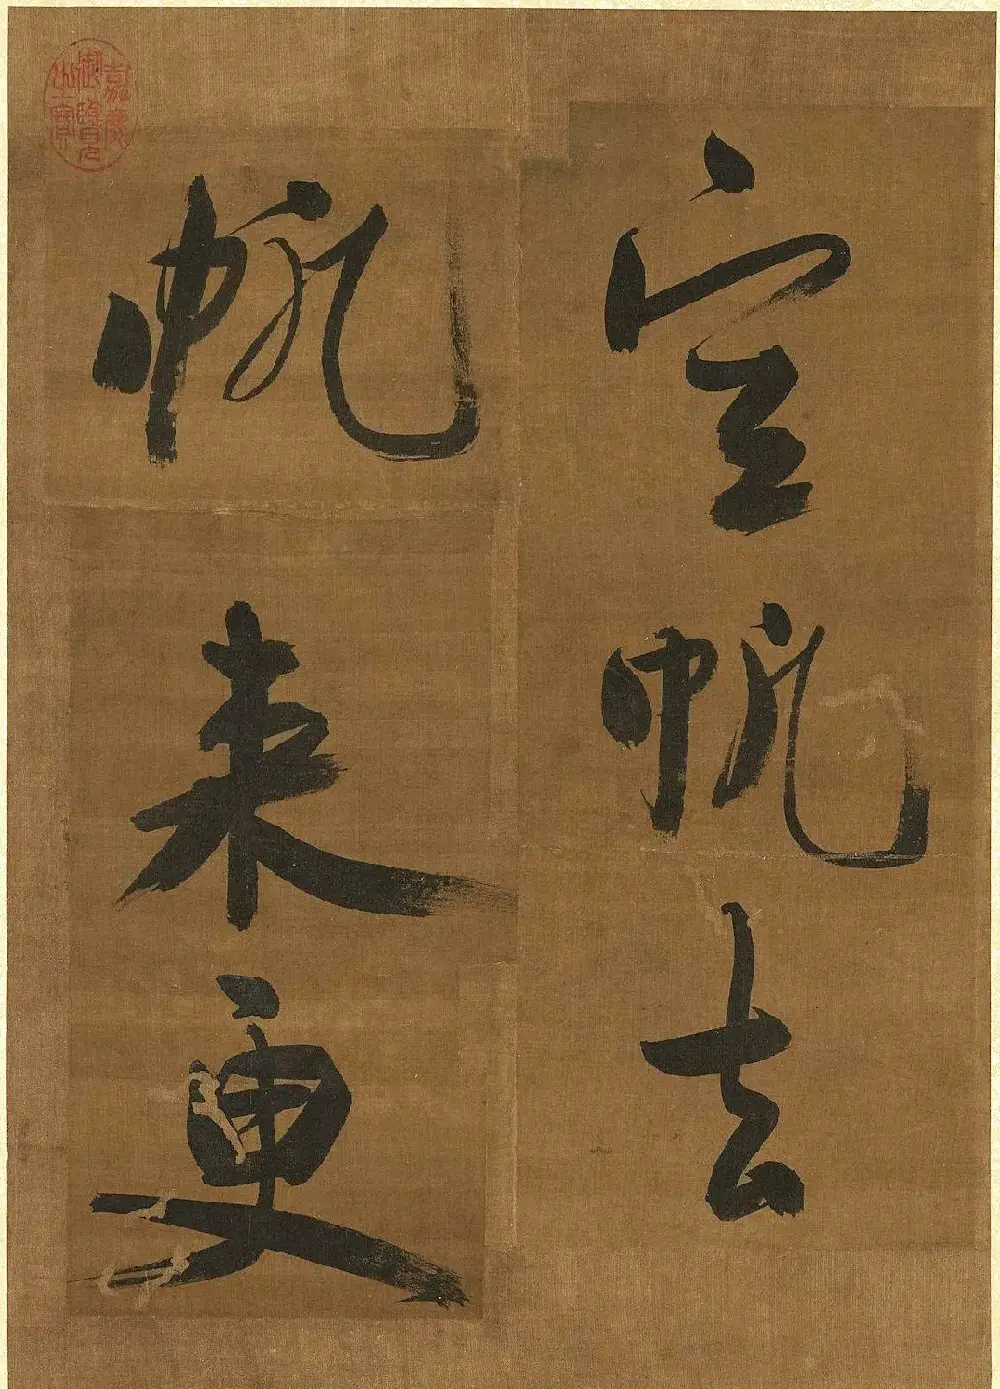 空帆去
帆来更
嘉慶
御覽
之寶